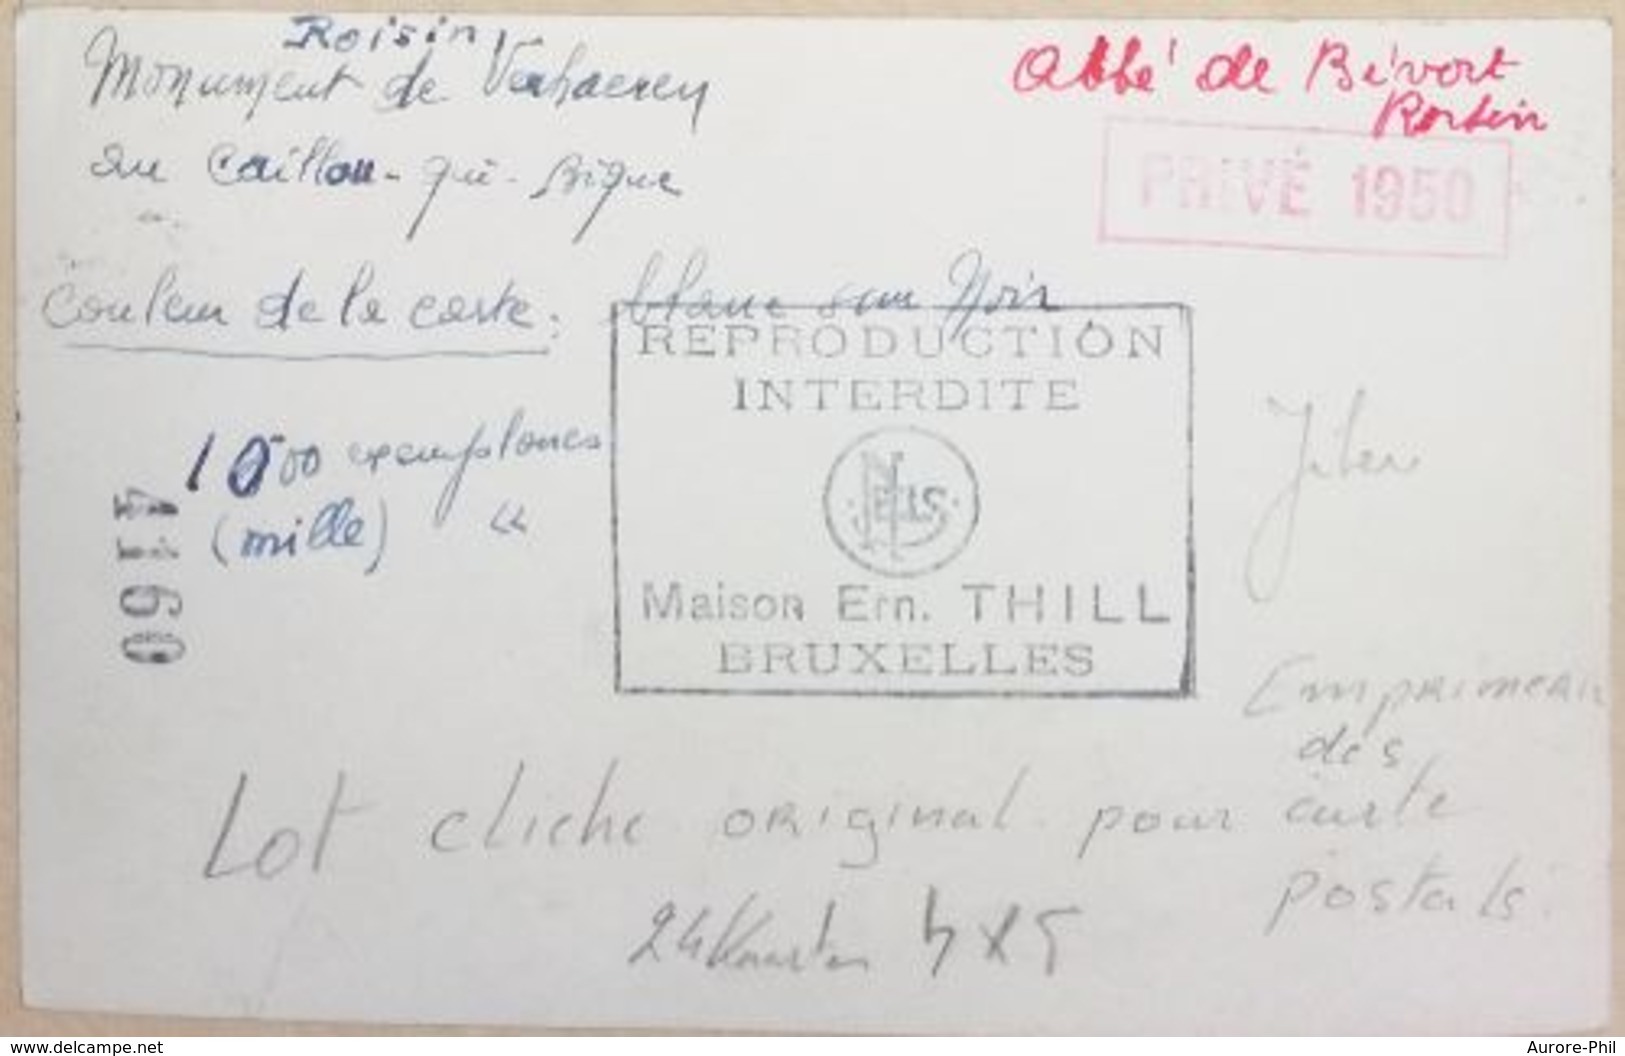 Roisin,
Monument de Verhaeren
au Caillou-qui-Bique
Abbé de Bévort
PRIVÉ 1950
Couleur de la carte: blanc sur Noir
1000 exemplaires
(mille) "
41160
REPRODUCTION
INTERDITE
NELS
Maison Ern. THILL
BRUXELLES
Imprimeur
des
Lot cliche original pour carte
postals
24 Kaarten
www.delcampe.net
Aurore-Phil